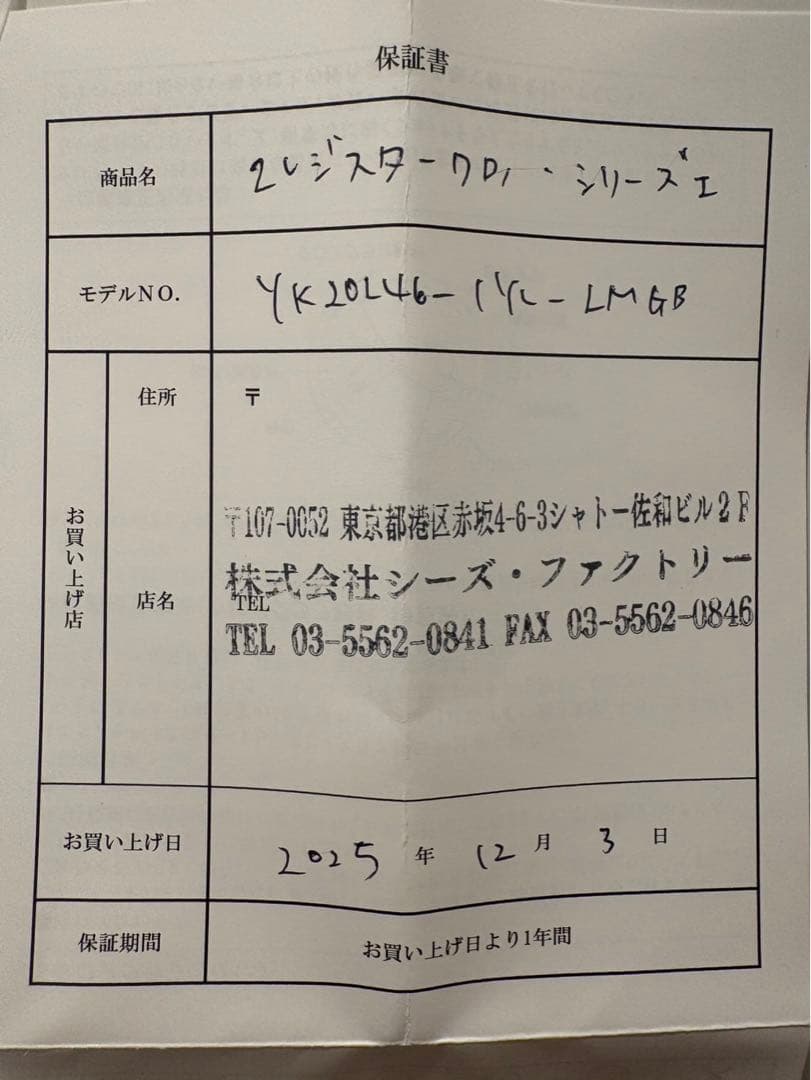 保証書
商品名
2レジスタークロノ・シリーズI
モデルNO.
YK20L46-1YL-LMGB
お買い上げ店
住所
〒
〒107-0052 東京都港区赤坂4-6-3シャトー佐和ビル2F
店名
株式会社シーズ・ファクトリー
TEL
TEL 03-5562-0841 FAX 03-5562-0846
お買い上げ日
2025年12月3日
保証期間
お買い上げ日より1年間